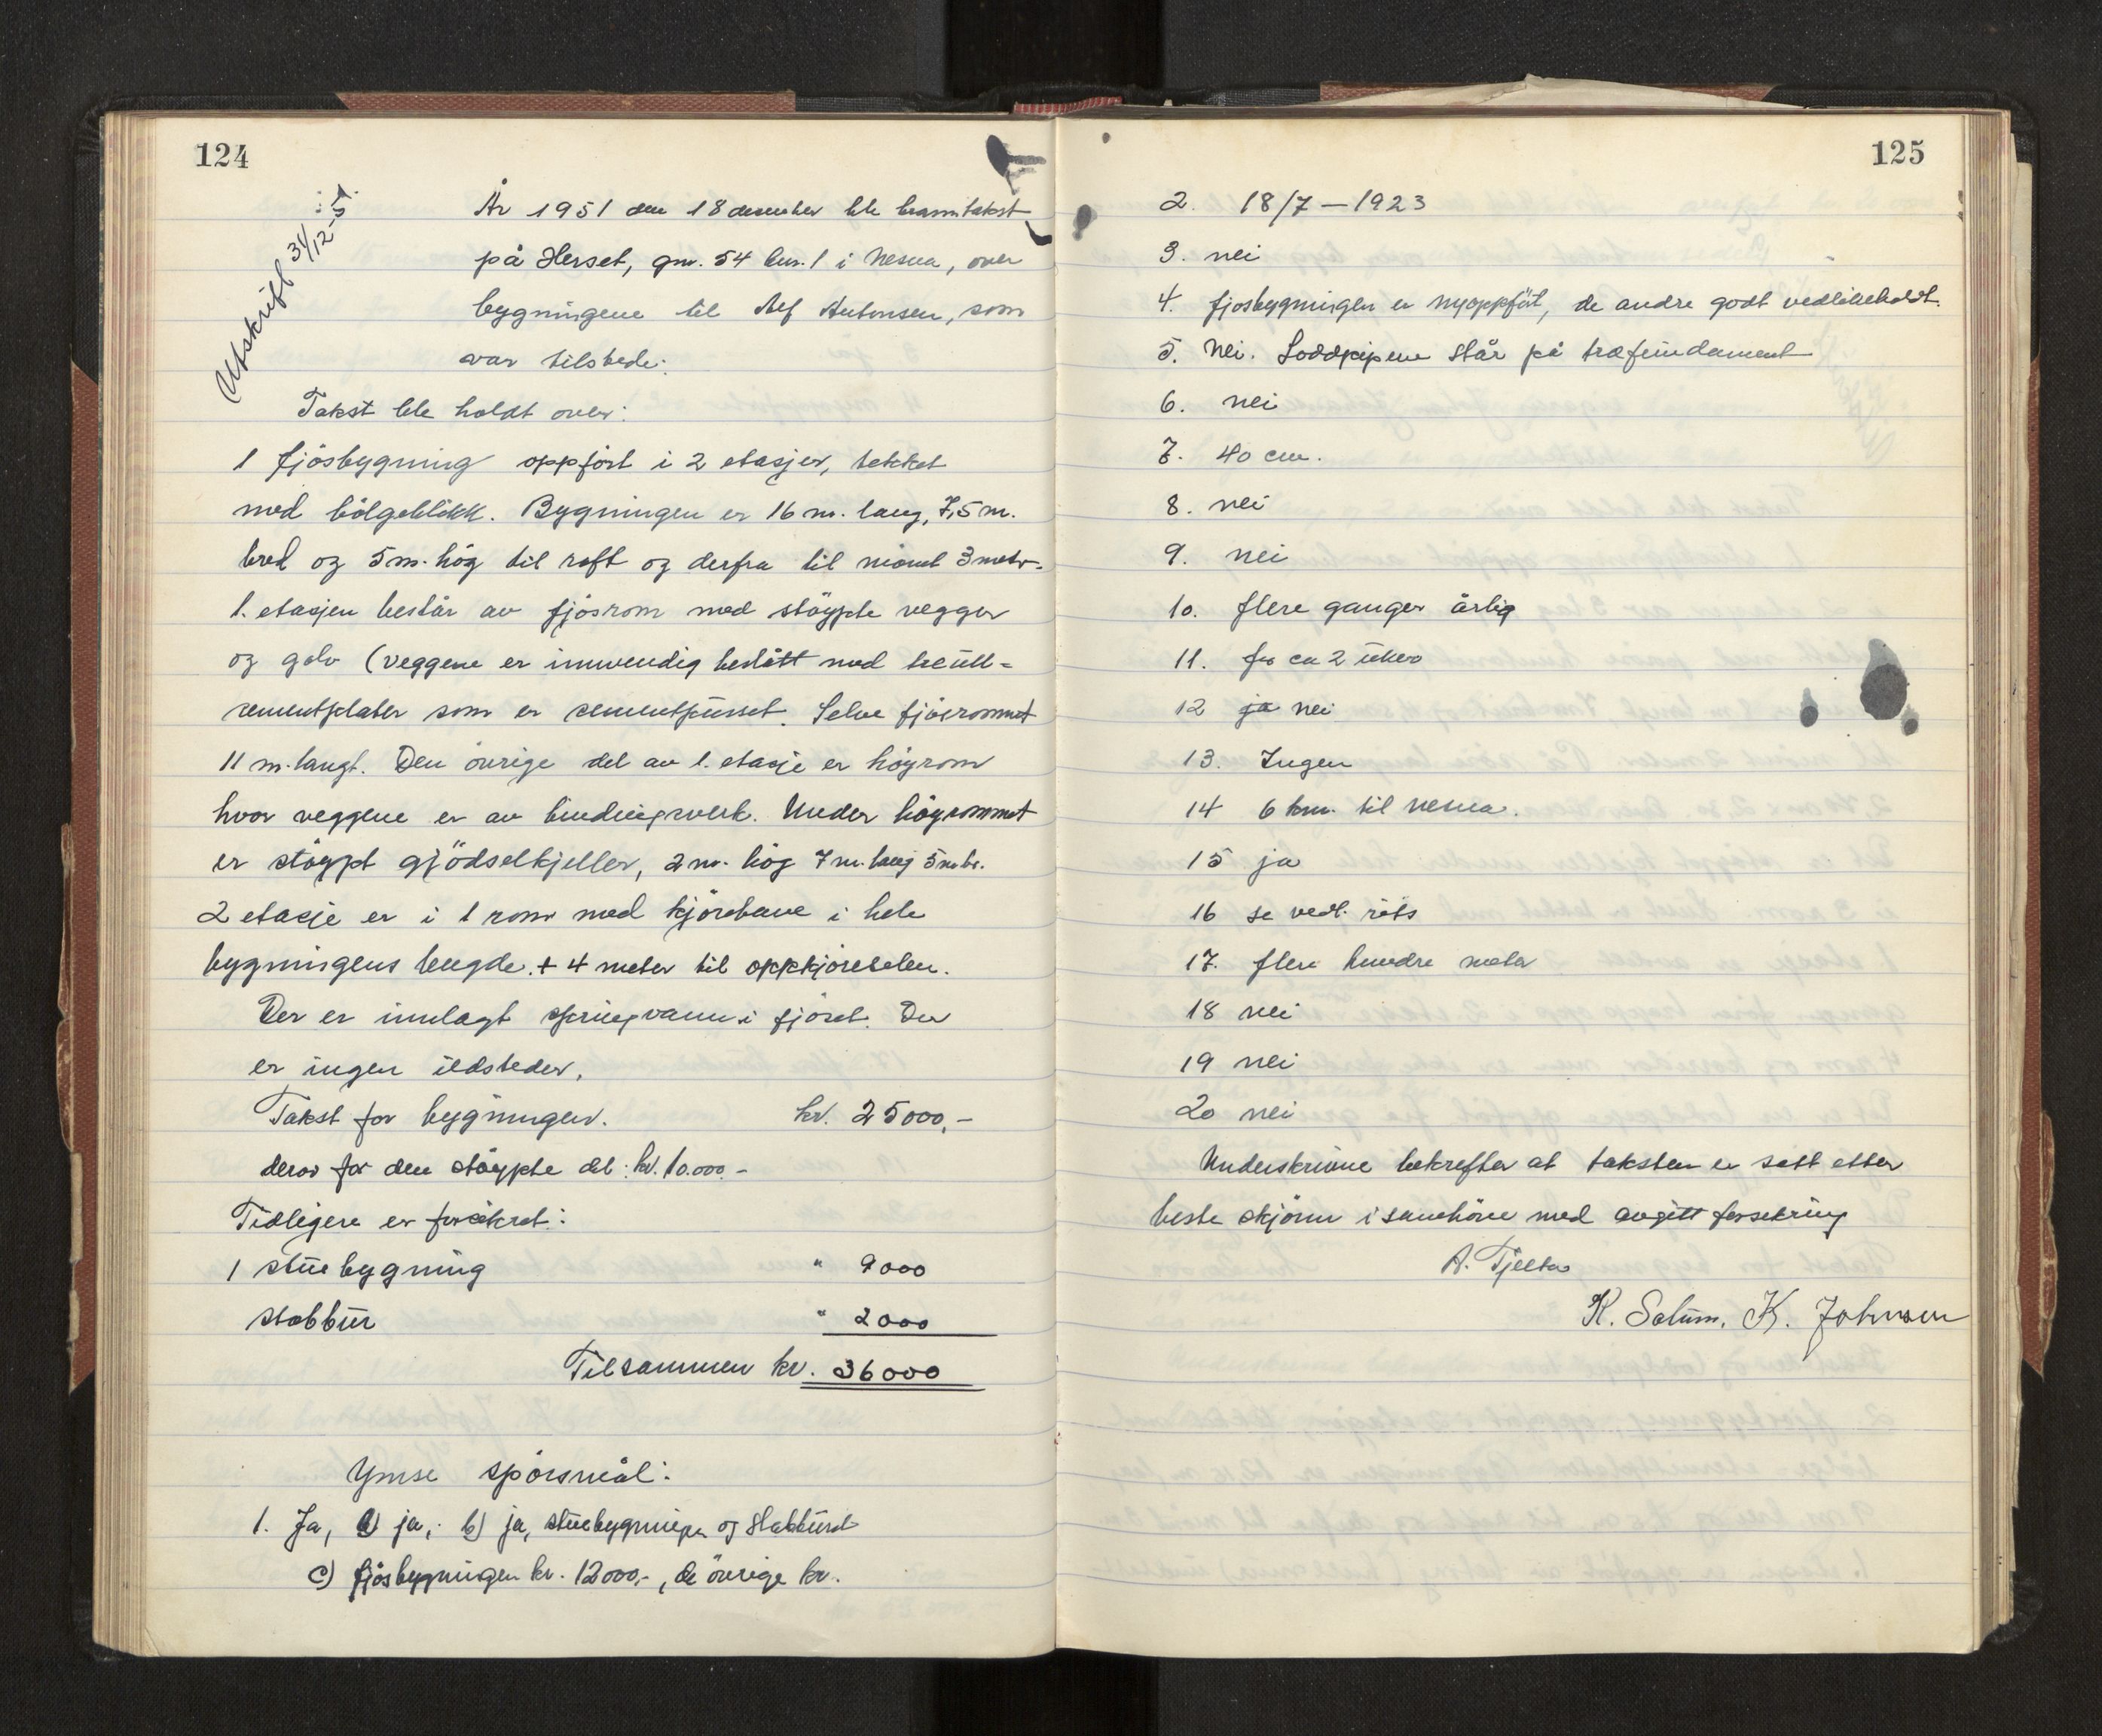 124
Utskrift 31/12-51.
År 1951 den 18 desember ble branntakst
på Herset, gnr. 54 bnr. 1 i Nesna, over
bygningene til Alf Antonsen, som
var tilstede.
Takst ble holdt over:
1 fjösbygning oppfört i 2 etasjer, tekket
med bölgeblikk. Bygningen er 16 m. lang, 7,5 m.
bred og 5 m. hög til raft og derfra til mönet 3 meter.
1. etasjen består av fjösrom med stöypte vegger
og golv (veggene er innvendig beslått med treull-
sementplater som er sementpusset. Selve fjösrommet
11 m. langt. Den övrige del av 1. etasje er höyrom
hvor veggene er av bindingsverk. Under höyrommet
er stöypt gjödselkjeller, 2 m. hög 7 m. lang 5 m br.
2 etasje er i 1 rom med kjörebane i hele
bygningens lengde. + 4 meter til oppkjörselen.
Der er innlagt springvann i fjöset. Der
er ingen ildsteder.
Takst for bygningen. kr. 25000,-
derav for den stöypte del: kr. 10.000.-
Tidligere er forsikret:
1 stuebygning " 9000
stabbur " 2000
Tilsammen kr. 36000
Ymse spörsmål:
1. Ja, a) ja, b) ja, stuebygningen og stabburet
c) fjösbygningen kr. 12000,-, de övrige kr.
125
2. 18/7 - 1923
3. nei
4. fjösbygningen er nyoppfört, de andre godt vedlikeholdt.
5. Nei. Loddpipene står på træfundament
6. nei
7. 40 cm.
8. nei
9. nei
10. flere ganger årlig
11. for ca 2 uker
12 ja nei
13. Ingen
14 6 km. til Nesna.
15 ja
16 se vedl. riss
17. flere hundre meter
18 nei
19 nei
20 nei
Underskrivne bekrefter at taksten er satt etter
beste skjönn i samhöve med avgitt forsikring
A. Tjelta
K. Solum. K. Johnsen